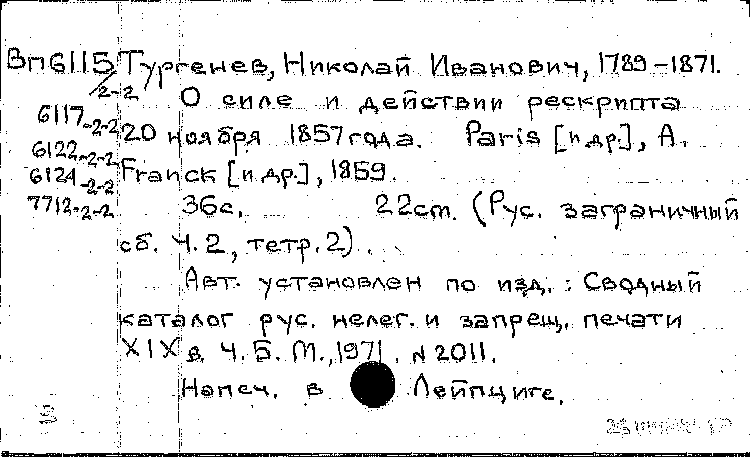 Вп6115/2-2 Тургенев, Николай Иванович, 1789-1871.
О силе и действии рескрипта
6117-2-2 20 ноября 1857 года. Paris [и др.], A.
6122-2-2
6124-2-2 Franck [и др.], 1859.
7712-2-2 36с. 22cm. (Рус. заграничный
сб. Ч. 2, тетр. 2).
Авт. установлен по изд.: Сводный
каталог рус. нелег. и запрещ. печати
XIX в. Ч. Б. М., 1971. N 2011.
Напеч. в Лейпциге.